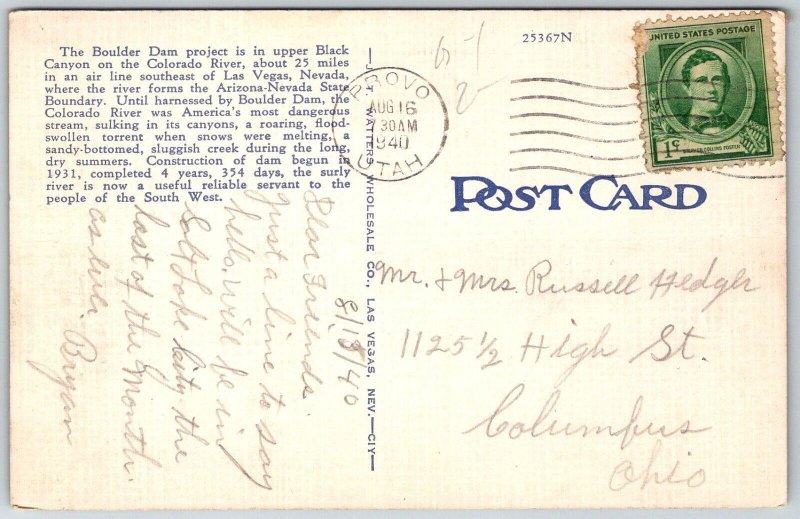 The Boulder Dam project is in upper Black
Canyon on the Colorado River, about 25 miles
in an air line southeast of Las Vegas, Nevada,
where the river forms the Arizona-Nevada State
Boundary. Until harnessed by Boulder Dam, the
Colorado River was America's most dangerous
stream, sulking in its canyons, a roaring, flood-
swollen torrent when snows were melting, a
sandy-bottomed, sluggish creek during the long,
dry summers. Construction of dam begun in
1931, completed 4 years, 354 days, the surly
river is now a useful reliable servant to the
people of the South West.
25367N
UNITED STATES POSTAGE
1¢
STEPHEN COLLINS FOSTER
PROVO
AUG 16
30AM
1940
UTAH
POST CARD
WATTERS WHOLESALE CO., LAS VEGAS, NEV.—CIY—
8/15/40
Dear Friends.
Just a line to say
hello. Will be in
Salt Lake City the
last of the month.
as ever. Bryan
Mr. & Mrs. Russell Hedger
1125 1/2 High St.
Columbus
Ohio